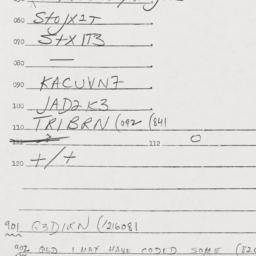 060 StojX2T
070 StX1T3
080 —
090 KACUVN7
100 JAD2K3
110 TRIBRN (092 (841
112 0
120 +/+
901 G3D1KN (/216081
902 AND I MAY HAVE CODED SOME (820